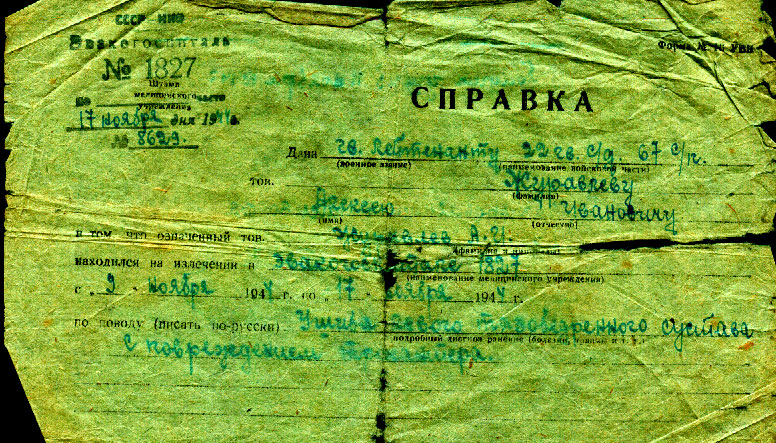 СССР - НКО
Эвакогоспиталь
№ 1827
Штамп
медицинского
учреждения
17 ноября дня 1944 г.
№ 8629
Форма № 16 УВП
СПРАВКА
Дана гв. лейтенанту 22 гв. с/д 67 с/п.
(военное звание) (наименование войсковой части)
тов. Журавлеву
(фамилия)
Алексею Ивановичу
(имя) (отчество)
в том что означенный тов. Журавлев А. И.
(фамилия и инициалы)
находился на излечении в Эвакогоспитале 1827
(наименование медицинского учреждения)
с „ 9 “ ноября 1944 г. по „ 17 “ ноября 1944 г.
по поводу (писать по-русски) Ушиба левого тазобедренного сустава
подробный диагноз ранения (болезни,
с повреждением